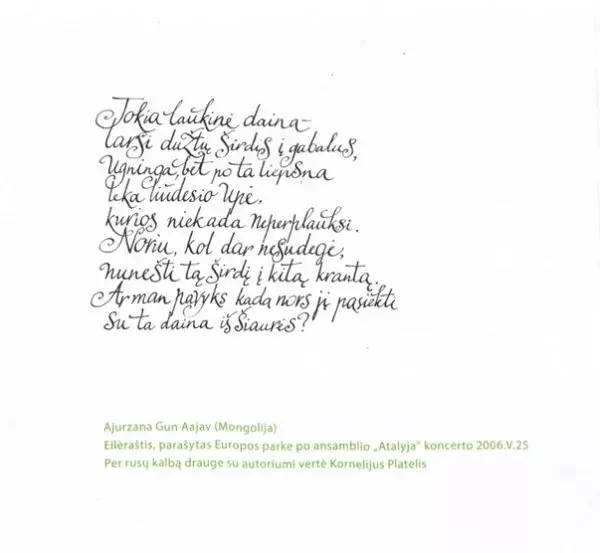 Tokia laukinė daina –
tarsi dužtų širdis į gabalus,
Ugninga, bet po ta liepsna
teka liūdesio upė,
kurios niekada neperplauksi.
Noriu, kol dar nesudegė,
nunešti tą širdį į kitą krantą.
Ar man pavyks kada nors jį pasiekti
su ta daina iš šiaurės?
Ajurzana Gun Aajav (Mongolija)
Eilėraštis, parašytas Europos parke po ansamblio „Atalyja" koncerto 2006.V.25
Per rusų kalbą drauge su autoriumi vertė Kornelijus Platelis